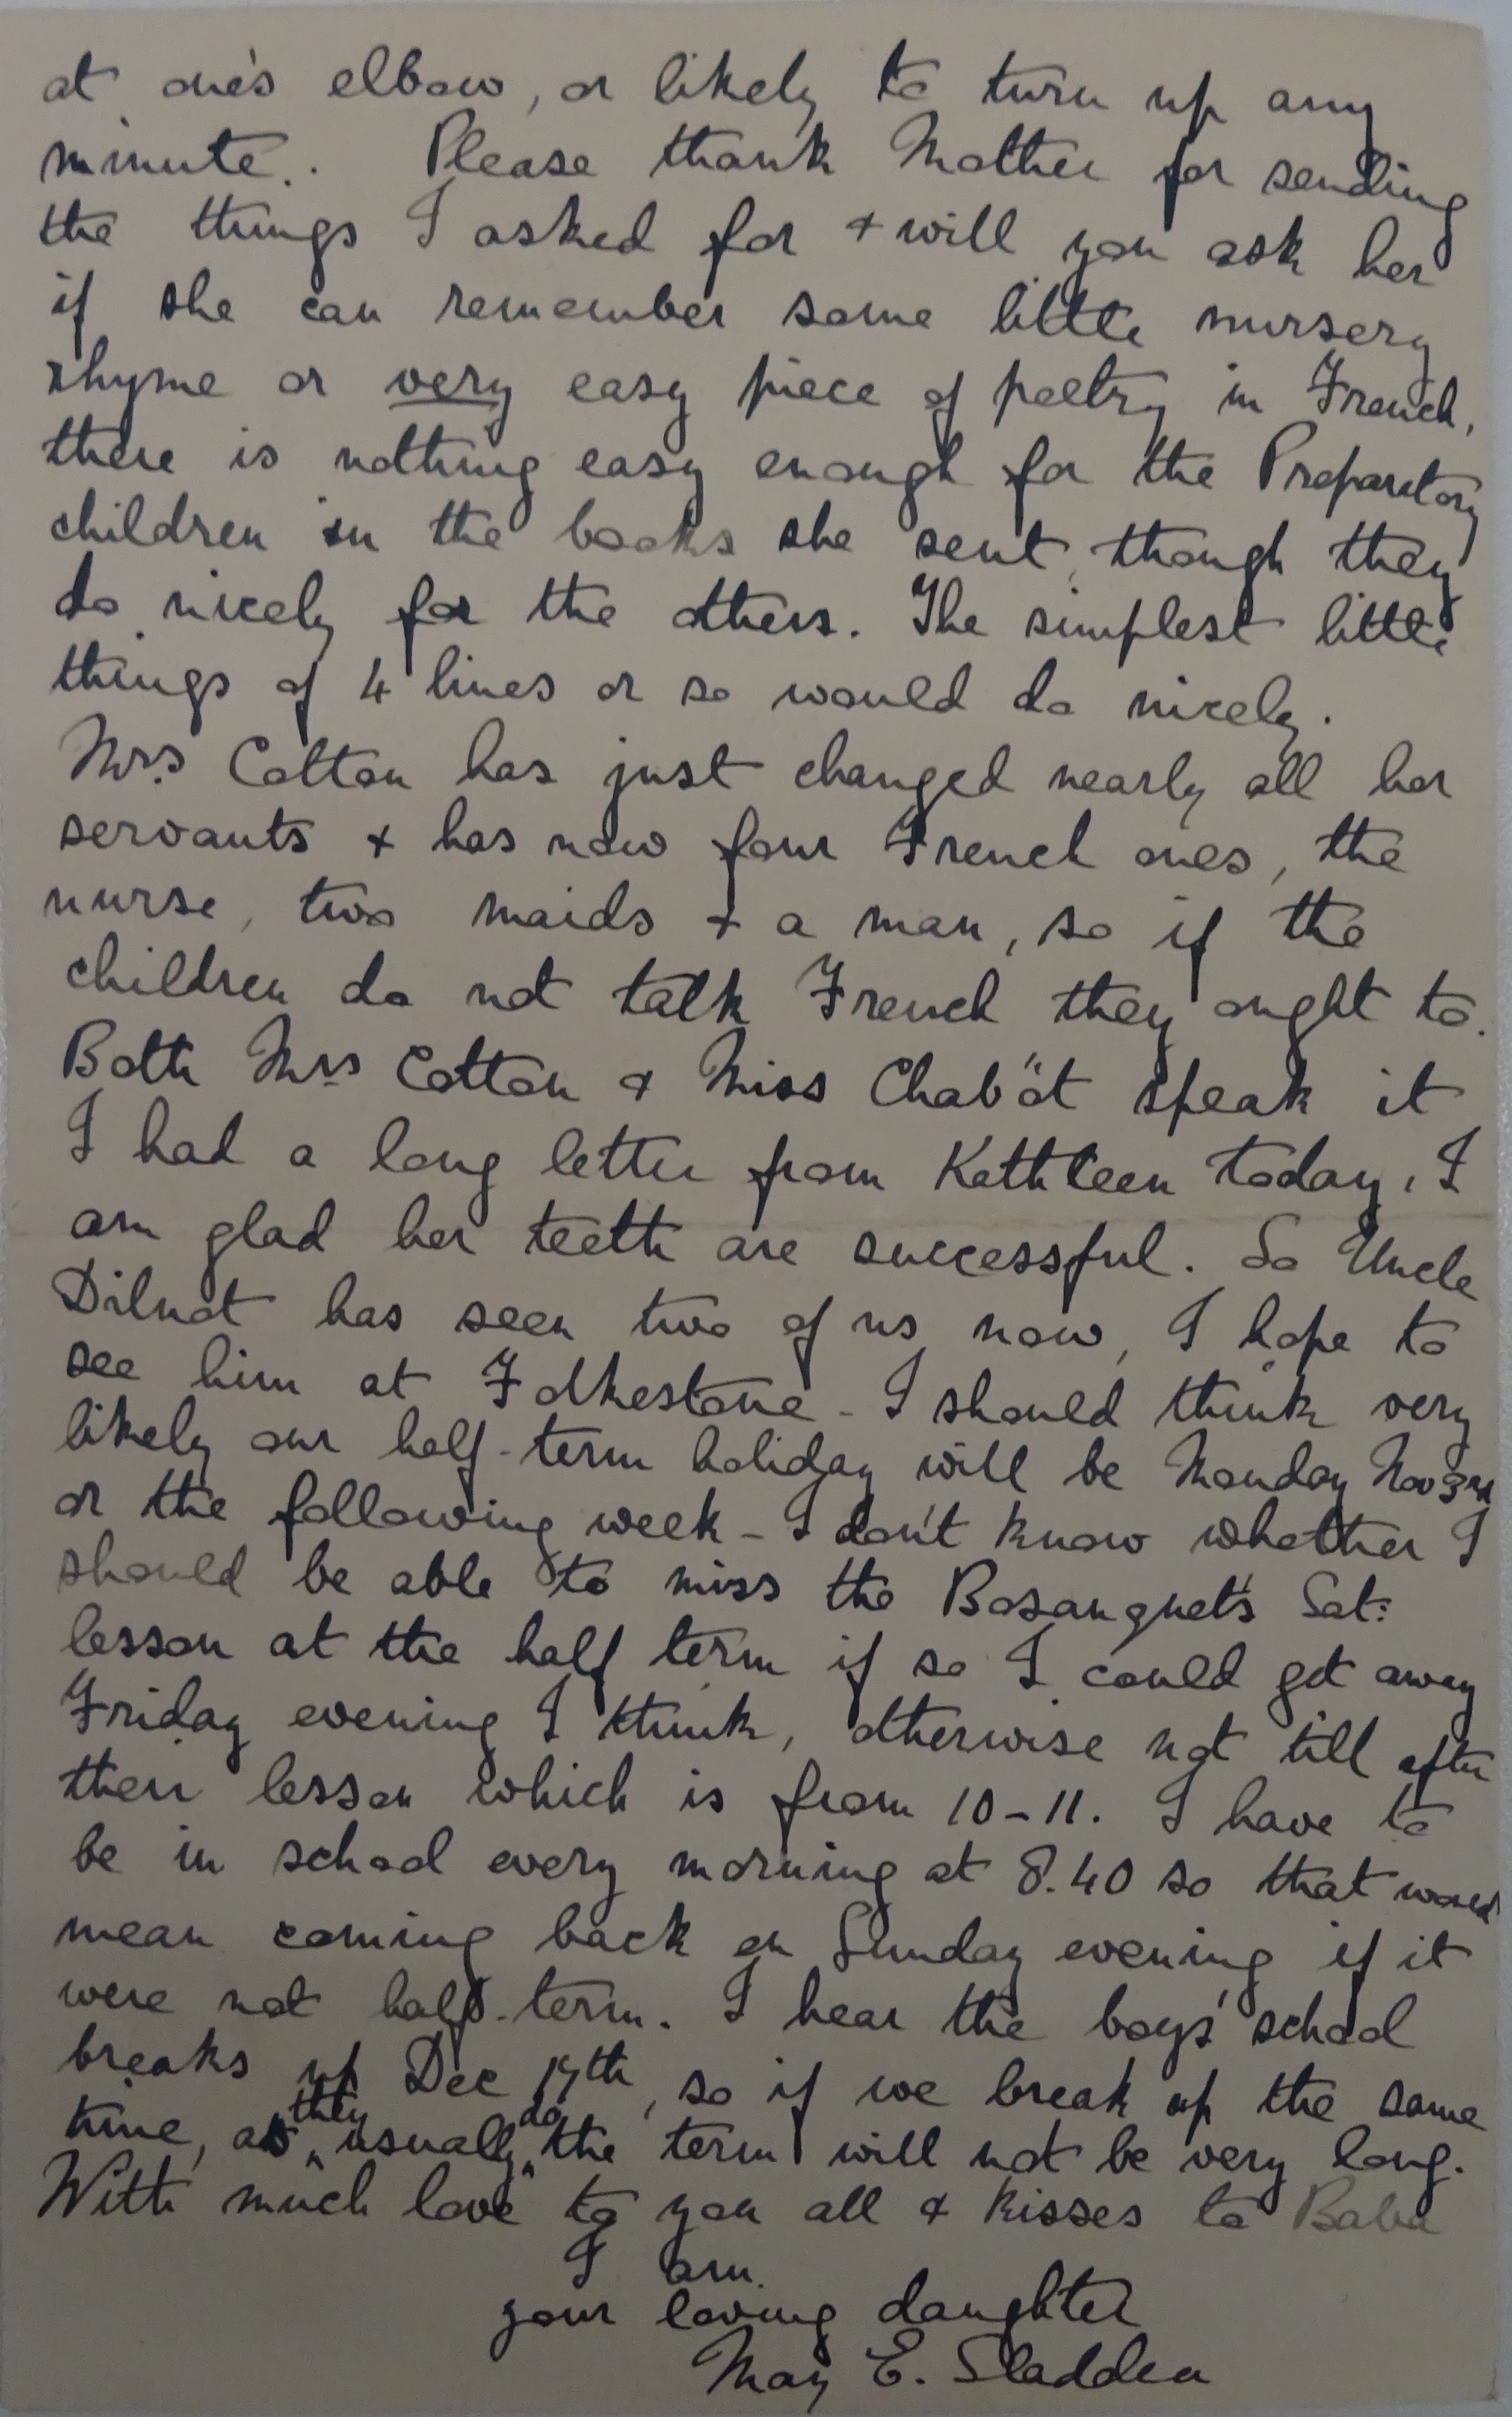 at one's elbow, or likely to turn up any
minute.. Please thank Mother for sending
the things I asked for + will you ask her
if she can remember some little nursery
rhyme or very easy piece of poetry in French,
there is nothing easy enough for the Preparatory
children in the books she sent, though they
do nicely for the others. The simplest little
things of 4 lines or so would do nicely.
Mrs Cotton has just changed nearly all her
servants + has now four French ones, the
nurse, two maids + a man, so if the
children do not talk French they ought to.
Both Mrs Cotton & Miss Chabôt speak it
I had a long letter from Kathleen today, I
am glad her teeth are successful. So Uncle
Dilnot has seen two of us now, I hope to
see him at Folkestone - I should think very
likely our half-term holiday will be Monday Nov 3rd
or the following week - I don't know whether I
should be able to miss the Bosanquet's Sat:
lesson at the half term if so I could get away
Friday evening I think, otherwise not till after
their lesson which is from 10-11. I have to
be in school every morning at 8.40 so that would
mean coming back on Sunday evening if it
were not half-term. I hear the boys' school
breaks up Dec 19th, so if we break up the same
time, as they usually do, the term will not be very long.
With much love to you all & kisses to Baba
I am
your loving daughter
May E. Sladden